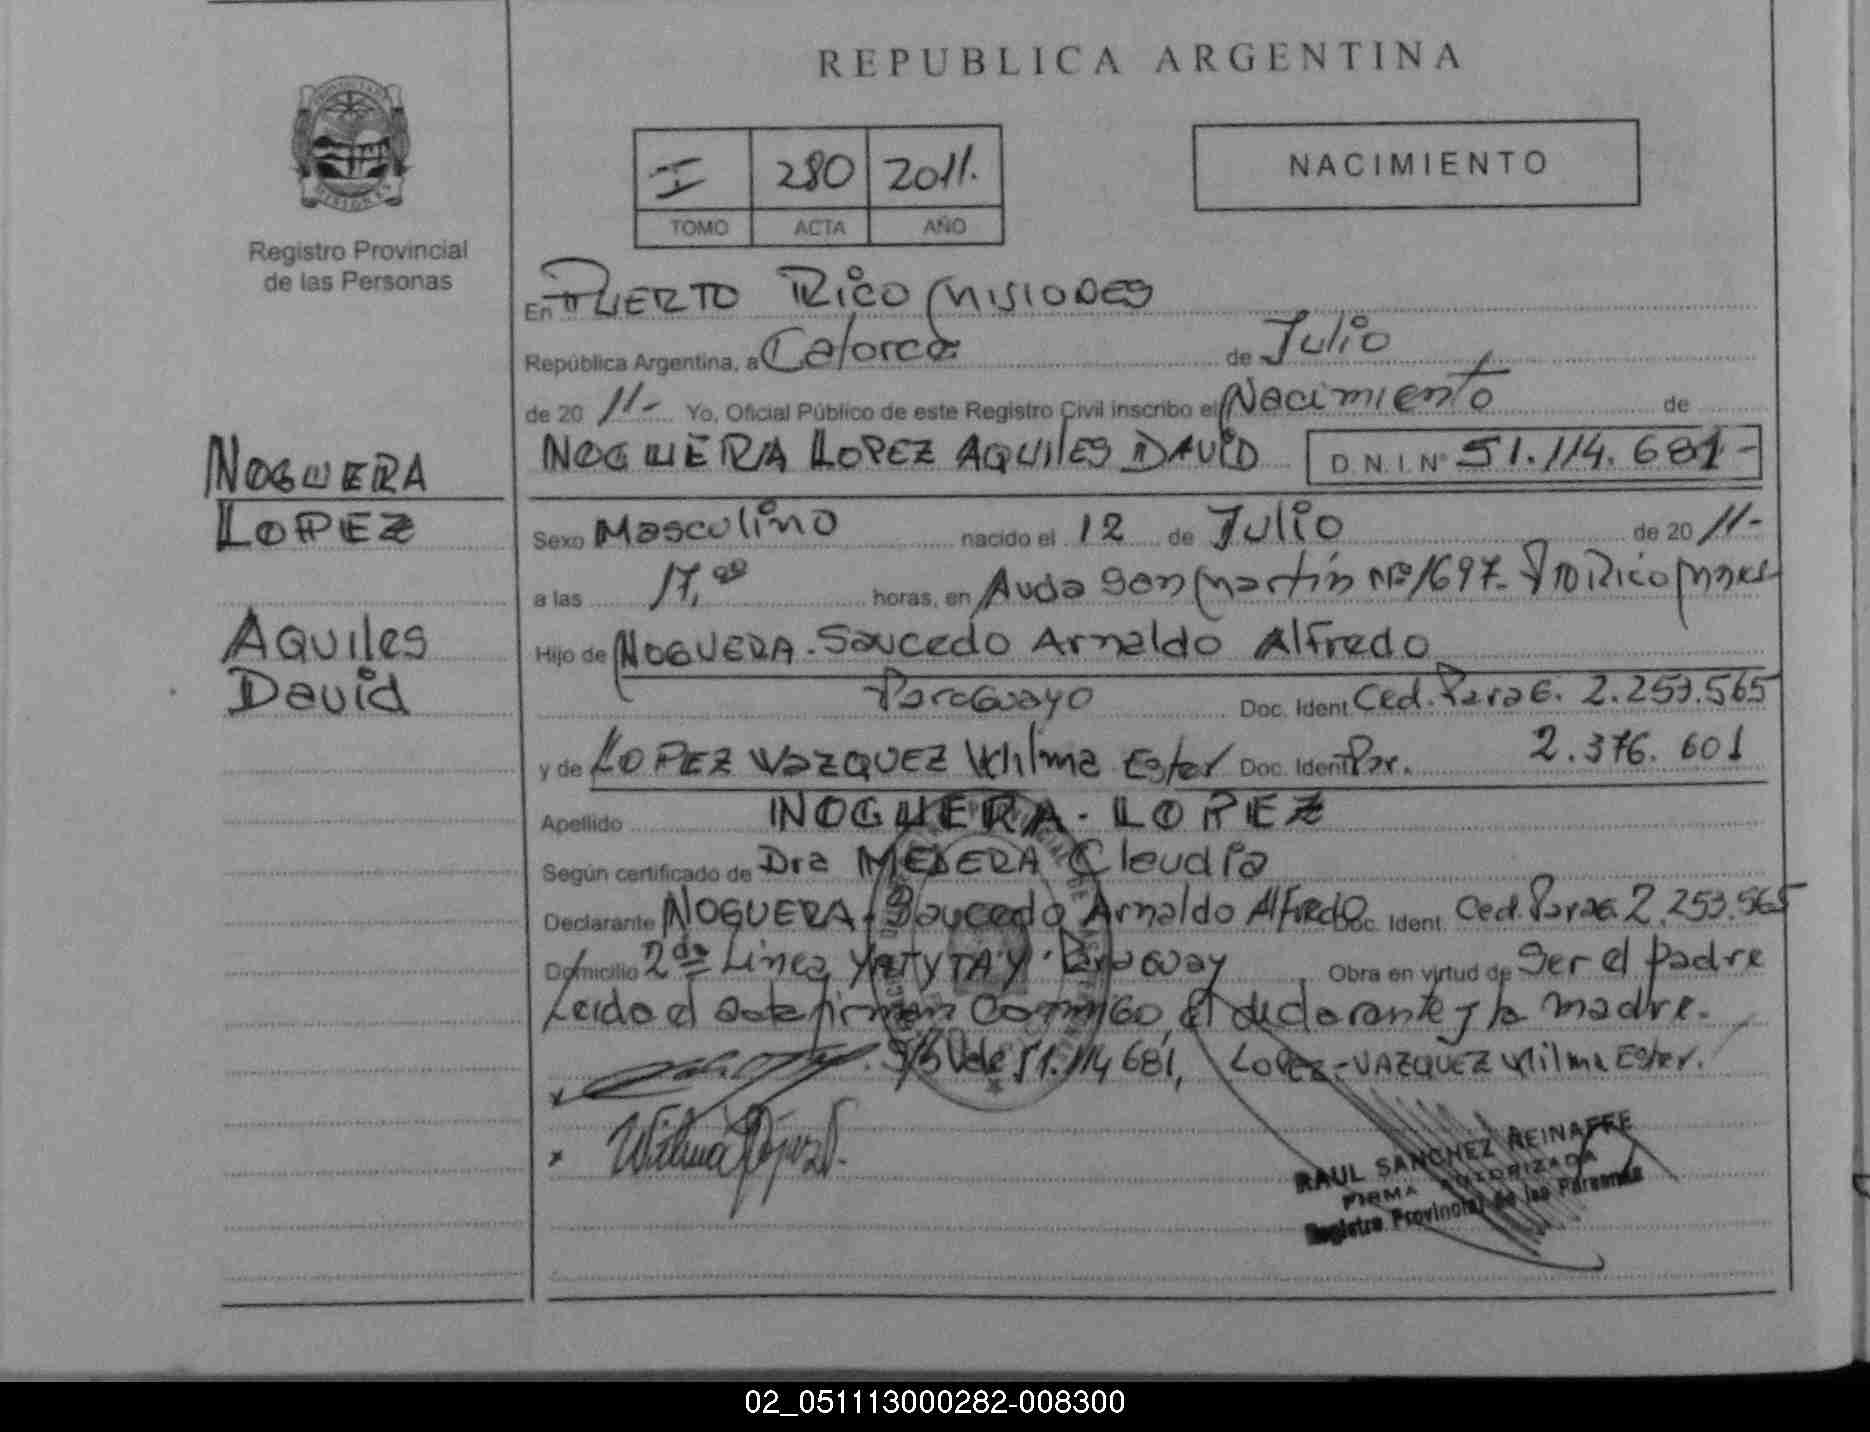 REPUBLICA ARGENTINA
Registro Provincial
de las Personas
I 280 2011.
TOMO ACTA AÑO
NACIMIENTO
NOGUERA
LOPEZ
AQUILES
David
En PUERTO RICO MISIONES
República Argentina, a Catorce de Julio
de 20 11- Yo, Oficial Público de este Registro Civil inscribo el Nacimiento de
NOGUERA LOPEZ AQUILES DAVID D.N.I. Nº 51.114.681-
Sexo Masculino nacido el 12 de Julio de 20 11-
a las 17,00 horas, en Avda San Martín Nº 1697- Pto Rico Mnes
Hijo de NOGUERA - Saucedo Arnaldo Alfredo
Paraguayo Doc. Ident. Ced. Parag. 2.253.565
y de LOPEZ VAZQUEZ Wilma Ester Doc. Ident. Par. 2.376.601
Apellido NOGUERA - LOPEZ
Según certificado de Dra MEDERA Claudia
Declarante NOGUERA - Saucedo Arnaldo Alfredo Doc. Ident. Ced. Parag. 2.253.565
Domicilio 2da Linea YATYTAY - Paraguay Obra en virtud de Ser el padre
Leida el acta firman Conmigo, el declarante y la madre.
S/B Vale 51.114.681, LOPEZ - VAZQUEZ Wilma Ester.
Wilma López V.
RAUL SANCHEZ REINAFFE
FIRMA AUTORIZADA
Registro Provincial de las Personas
02_051113000282-008300